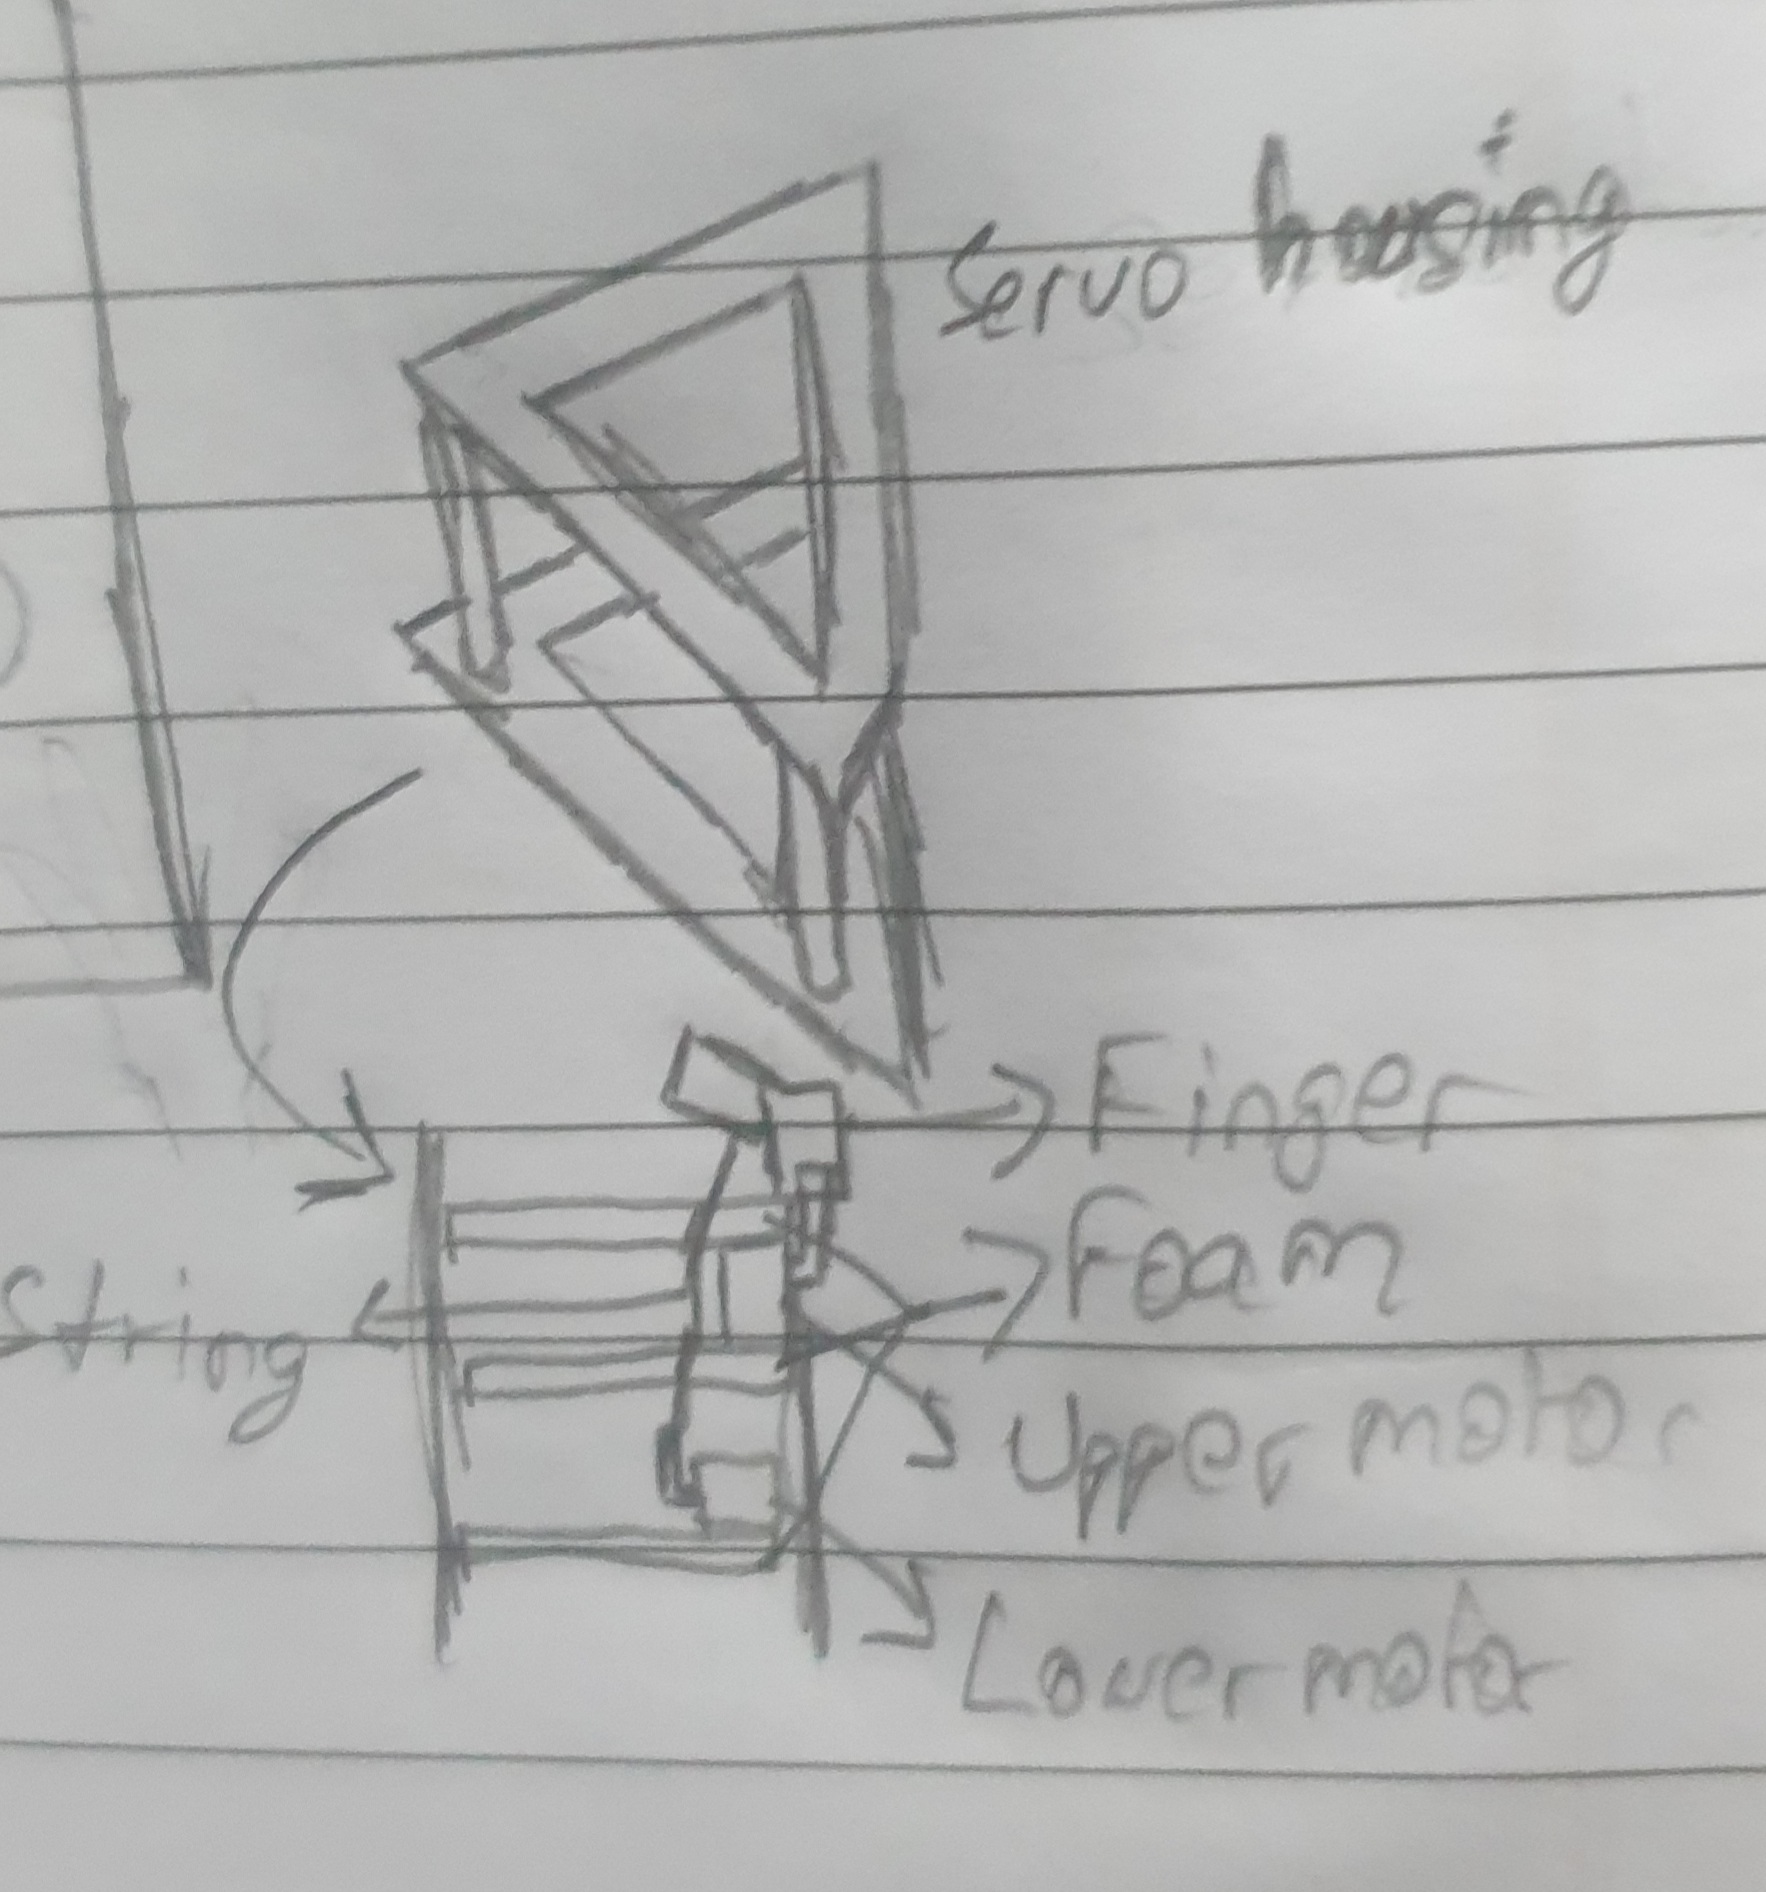 Servo housing
Finger
Foam
String
Upper motor
Lower motor